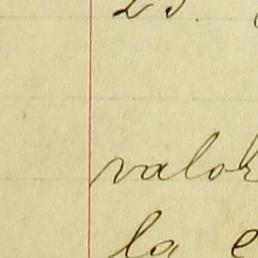 25.
valor
la